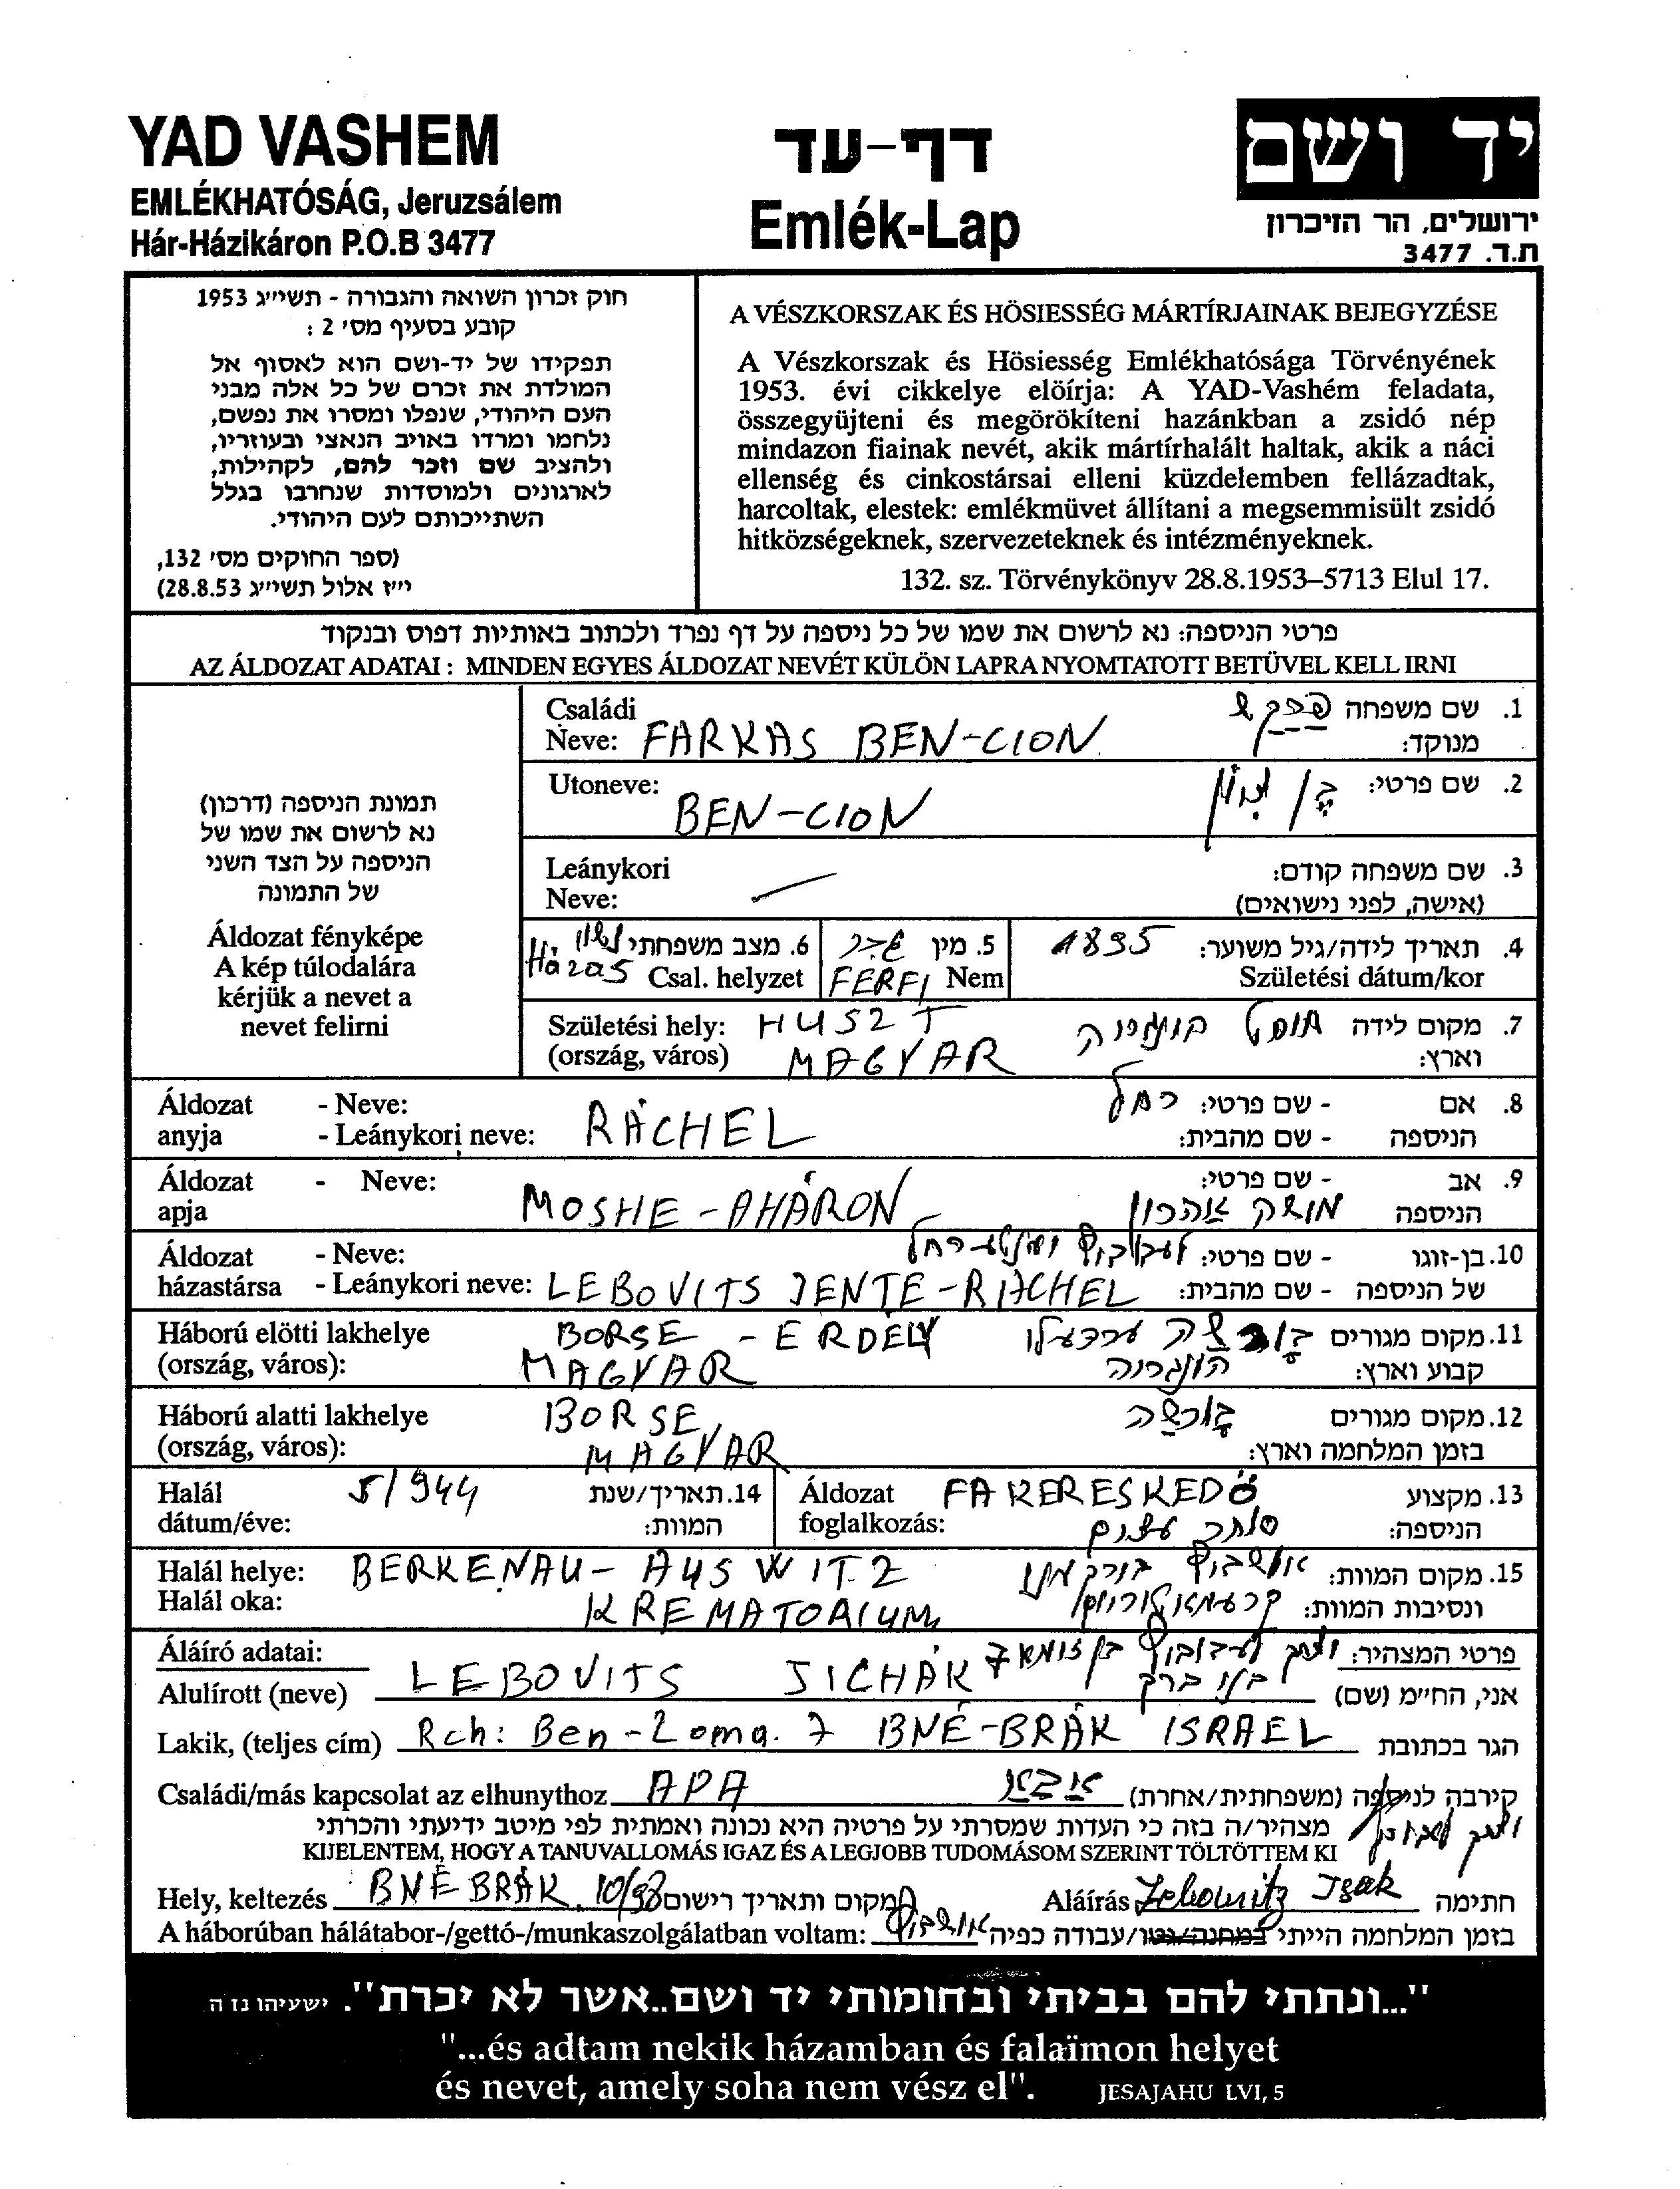 YAD VASHEM
EMLÉKHATÓSÁG, Jeruzsálem
Hár-Házikáron P.O.B 3477
דף-עד
Emlék-Lap
יד ושם
ירושלים, הר הזיכרון
ת.ד. 3477
חוק זכרון השואה והגבורה - תשי״ג 1953
קובע בסעיף מס׳ 2 :
תפקידו של יד-ושם הוא לאסוף אל
המולדת את זכרם של כל אלה מבני
העם היהודי, שנפלו ומסרו את נפשם,
נלחמו ומרדו באויב הנאצי ובעוזריו,
ולהציב שם וזכר להם, לקהילות,
לארגונים ולמוסדות שנחרבו בגלל
השתייכותם לעם היהודי.
(ספר החוקים מס׳ 132,
י״ז אלול תשי״ג 28.8.53)
A VÉSZKORSZAK ÉS HÖSIESSÉG MÁRTÍRJAINAK BEJEGYZÉSE
A Vészkorszak és Hösiesség Emlékhatósága Törvényének
1953. évi cikkelye elöírja: A YAD-Vashém feladata,
összegyüjteni és megörökíteni hazánkban a zsidó nép
mindazon fiainak nevét, akik mártírhalált haltak, akik a náci
ellenség és cinkostársai elleni küzdelemben fellázadtak,
harcoltak, elestek: emlékmüvet állítani a megsemmisült zsidó
hitközségeknek, szervezeteknek és intézményeknek.
132. sz. Törvénykönyv 28.8.1953–5713 Elul 17.
פרטי הניספה: נא לרשום את שמו של כל ניספה על דף נפרד ולכתוב באותיות דפוס ובנקוד
AZ ÁLDOZAT ADATAI : MINDEN EGYES ÁLDOZAT NEVÉT KÜLÖN LAPRA NYOMTATOTT BETÜVEL KELL IRNI
תמונת הניספה (דרכון)
נא לרשום את שמו של
הניספה על הצד השני
של התמונה
Áldozat fényképe
A kép túlodalára
kérjük a nevet a
nevet felirni
Családi
Neve: FARKAS BEN-CION
1. שם משפחה פרקש
מנוקד:
Utoneve: BEN-CION
2. שם פרטי: בן ציון
Leánykori
Neve: —
3. שם משפחה קודם:
(אישה, לפני נישואים)
4. תאריך לידה/גיל משוער: 1895
Születési dátum/kor
5. מין גבר
FERFI Nem
6. מצב משפחתי נשוי
Házas Csal. helyzet
Születési hely: HUSZT
(ország, város) MAGYAR
7. מקום לידה חוסט הונגריה
וארץ:
Áldozat - Neve: RÁCHEL
anyja - Leánykori neve:
8. אם - שם פרטי: רחל
הניספה - שם מהבית:
Áldozat - Neve:
apja MOSHE-AHÁRON
9. אב - שם פרטי:
הניספה משה אהרון
Áldozat - Neve:
házastársa - Leánykori neve: LEBOVITS JENTE-RÁCHEL
10. בן-זוגו - שם פרטי:
של הניספה - שם מהבית:
Háború elötti lakhelye BORSE - ERDÉLY
(ország, város): MAGYAR
11. מקום מגורים
קבוע וארץ: הונגריה
Háború alatti lakhelye BORSE
(ország, város): MAGYAR
12. מקום מגורים בורשה
בזמן המלחמה וארץ:
Halál 5/944
dátum/éve:
14. תאריך/שנת
המוות:
Áldozat FAKERESKEDÖ
foglalkozás:
13. מקצוע
הניספה: סוחר עצים
Halál helye: BERKENAU - AUSWITZ
Halál oka: KREMATORIUM
15. מקום המוות:
ונסיבות המוות:
Áláíró adatai:
פרטי המצהיר:
Alulírott (neve) LEBOVITS JICHÁK
אני, החי״מ (שם) בני ברק
Lakik, (teljes cím) Rch: Ben-Zoma. 7 BNÉ-BRÁK ISRAEL
הגר בכתובת
Családi/más kapcsolat az elhunythoz APA
קירבה לניספה (משפחתית/אחרת) אבא
מצהיר/ה בזה כי העדות שמסרתי על פרטיה היא נכונה ואמתית לפי מיטב ידיעתי והכרתי
KIJELENTEM, HOGY A TANUVALLOMÁS IGAZ ÉS A LEGJOBB TUDOMÁSOM SZERINT TÖLTÖTTEM KI
Hely, keltezés BNÉ BRÁK. 10/98 מקום ותאריך רישום
Aláírás Lebowitz Isak חתימה
A háborúban hálátabor-/gettó-/munkaszolgálatban voltam:
בזמן המלחמה הייתי במחנה/גטו/עבודה כפיה
"...ונתתי להם בביתי ובחומותי יד ושם..אשר לא יכרת". ישעיהו נו ה
"...és adtam nekik házamban és falaïmon helyet
és nevet, amely soha nem vész el". JESAJAHU LVI, 5